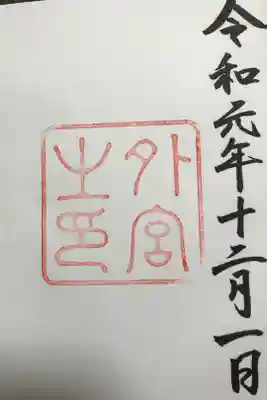 令和元年十二月一日
外宮
之印